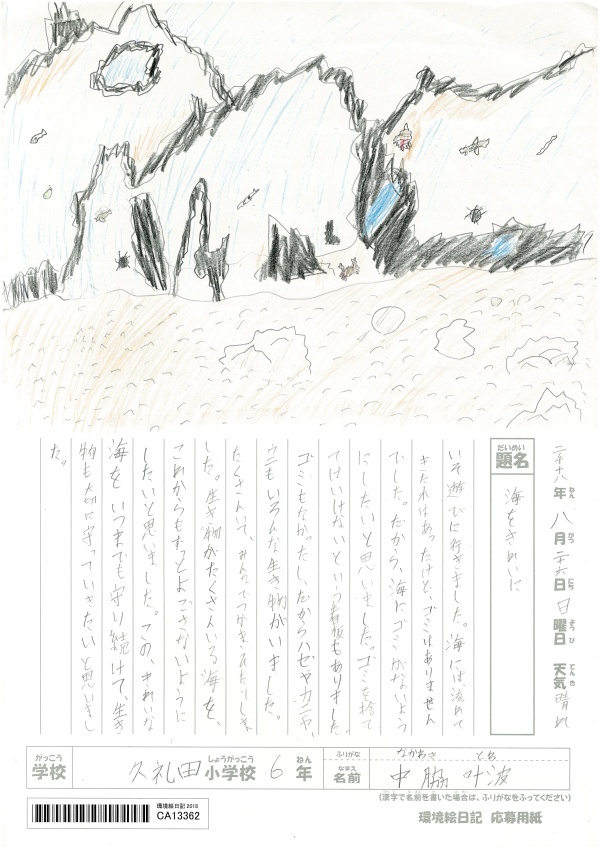 二十八年 八月 二十六日 日曜日 天気 晴れ
ねん がつ にち ようび てんき
だいめい
題名
海をきれいに
いそ遊びに行きました。海には流れて
きたれはあったけど、ゴミはありません
でした。だから、海にゴミがないよう
にしたいと思いました。ゴミを捨て
てはいけないという看板もありました。
ゴミもなかったし、だからハゼやカニや、
ウニもいろんな生き物がいました。
たくさんいて、みんなでつかまえたりしま
した。生き物がたくさんいる海を、
これからももっとよごさないように
したいと思いました。この、きれいな
海を、いつまでも守り続けて、生き
物も大切に守っていきたいと思いまし
た。
がっこう しょうがっこう ねん
学校 久礼田 小学校 6 年
ふりがな なかわき とち
なまえ
名前 中脇 叶波
(漢字で名前を書いた場合は、ふりがなをふってください)
環境絵日記 2018
CA13362
環境絵日記 応募用紙